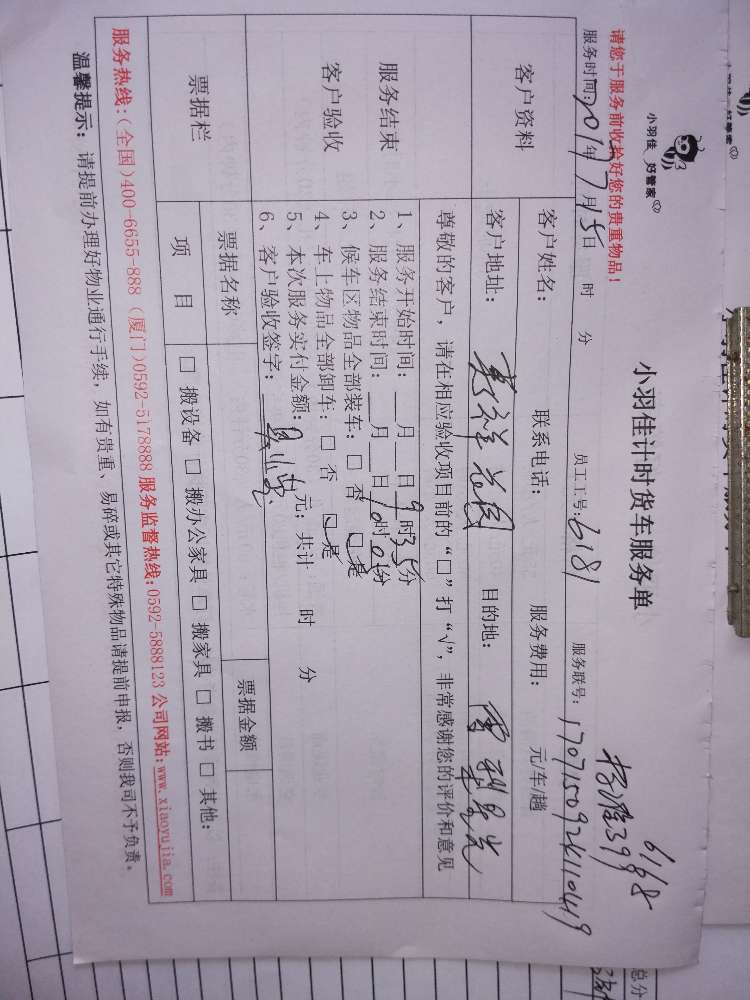 小羽佳 好管家
小羽佳计时货车服务单
6168
3988
请您于服务前收拾好您的贵重物品！
服务时间：2017年7月15日 时 分 员工工号：6181 服务联号：
客户资料
客户姓名： 联系电话： 服务费用： 元/车/趟
客户地址： 目的地：
尊敬的客户，请在相应验收项目前的“□”打“√”，非常感谢您的评价和意见
服务结束
客户验收
1、服务开始时间：__月__日9时35分
2、服务结束时间：__月__日10时01分
3、候车区物品全部装车：□ 否 □ 是
4、车上物品全部卸车：□ 否 □ 是
5、本次服务实付金额： 元；共计 时 分
6、客户验收签字：
票据栏
票据名称 票据金额
项 目 □ 搬设备 □ 搬办公家具 □ 搬家具 □ 搬书 □ 其他：
服务热线：(全国)400-6655-888 (厦门)0592-5178888 服务监督热线:0592-5888123 公司网站:www.xiaoyujia.com
温馨提示：请提前办理好物业通行手续，如有贵重、易碎或其它特殊物品请提前申报，否则我司不予负责。
总分